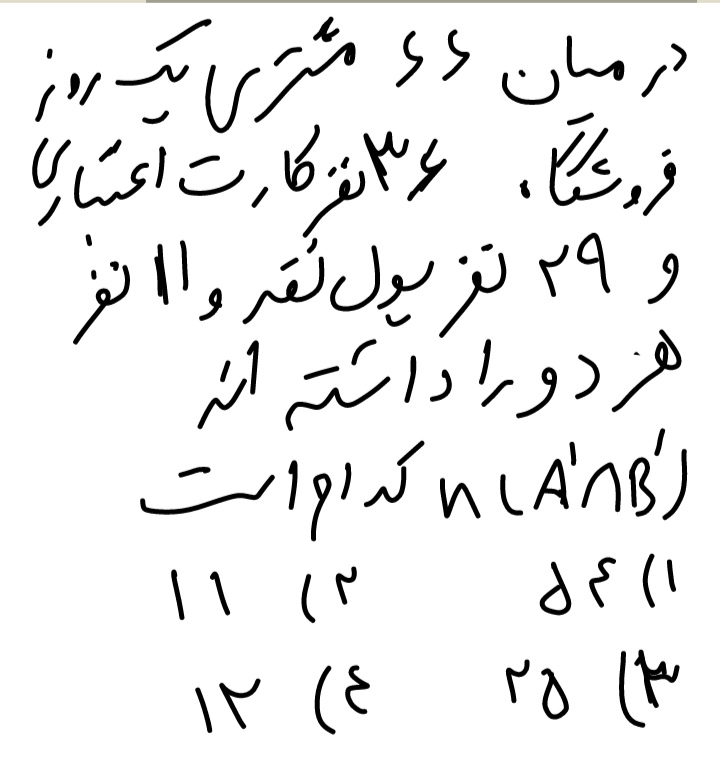 در میان ۶۶ مشتری یک روز
فروشگاه ۳۶ نفر کارت اعتباری
و ۲۹ نفر پول نقد و ۱۱ نفر
هر دو را داشته اند
n(A'∩B') کدام است
۱) ۵۴ ۲) ۱۱
۳) ۲۵ ۴) ۱۲